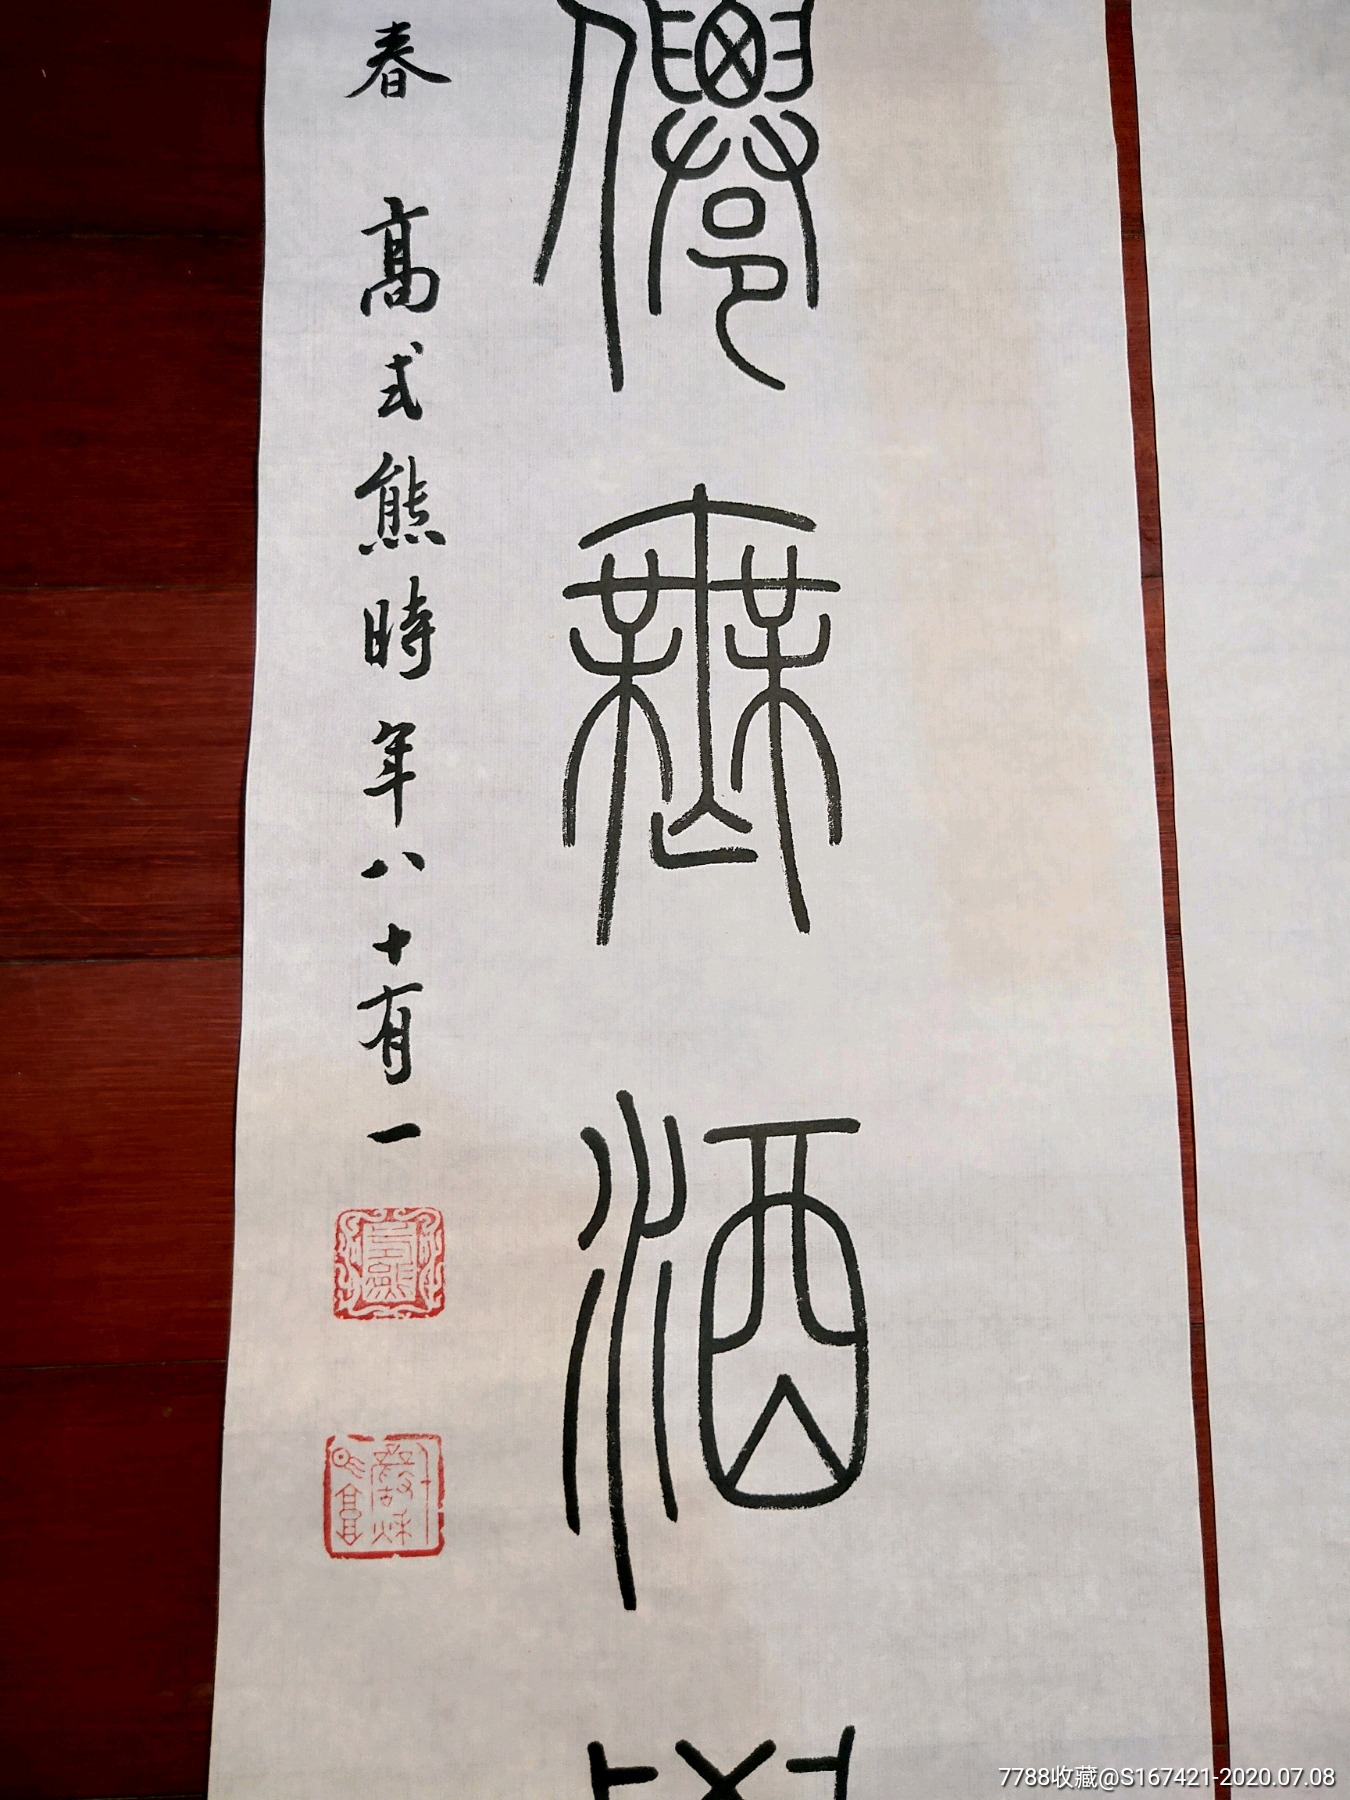 僊無酒
春 高式熊時年八十有一
7788收藏@S167421-2020.07.08